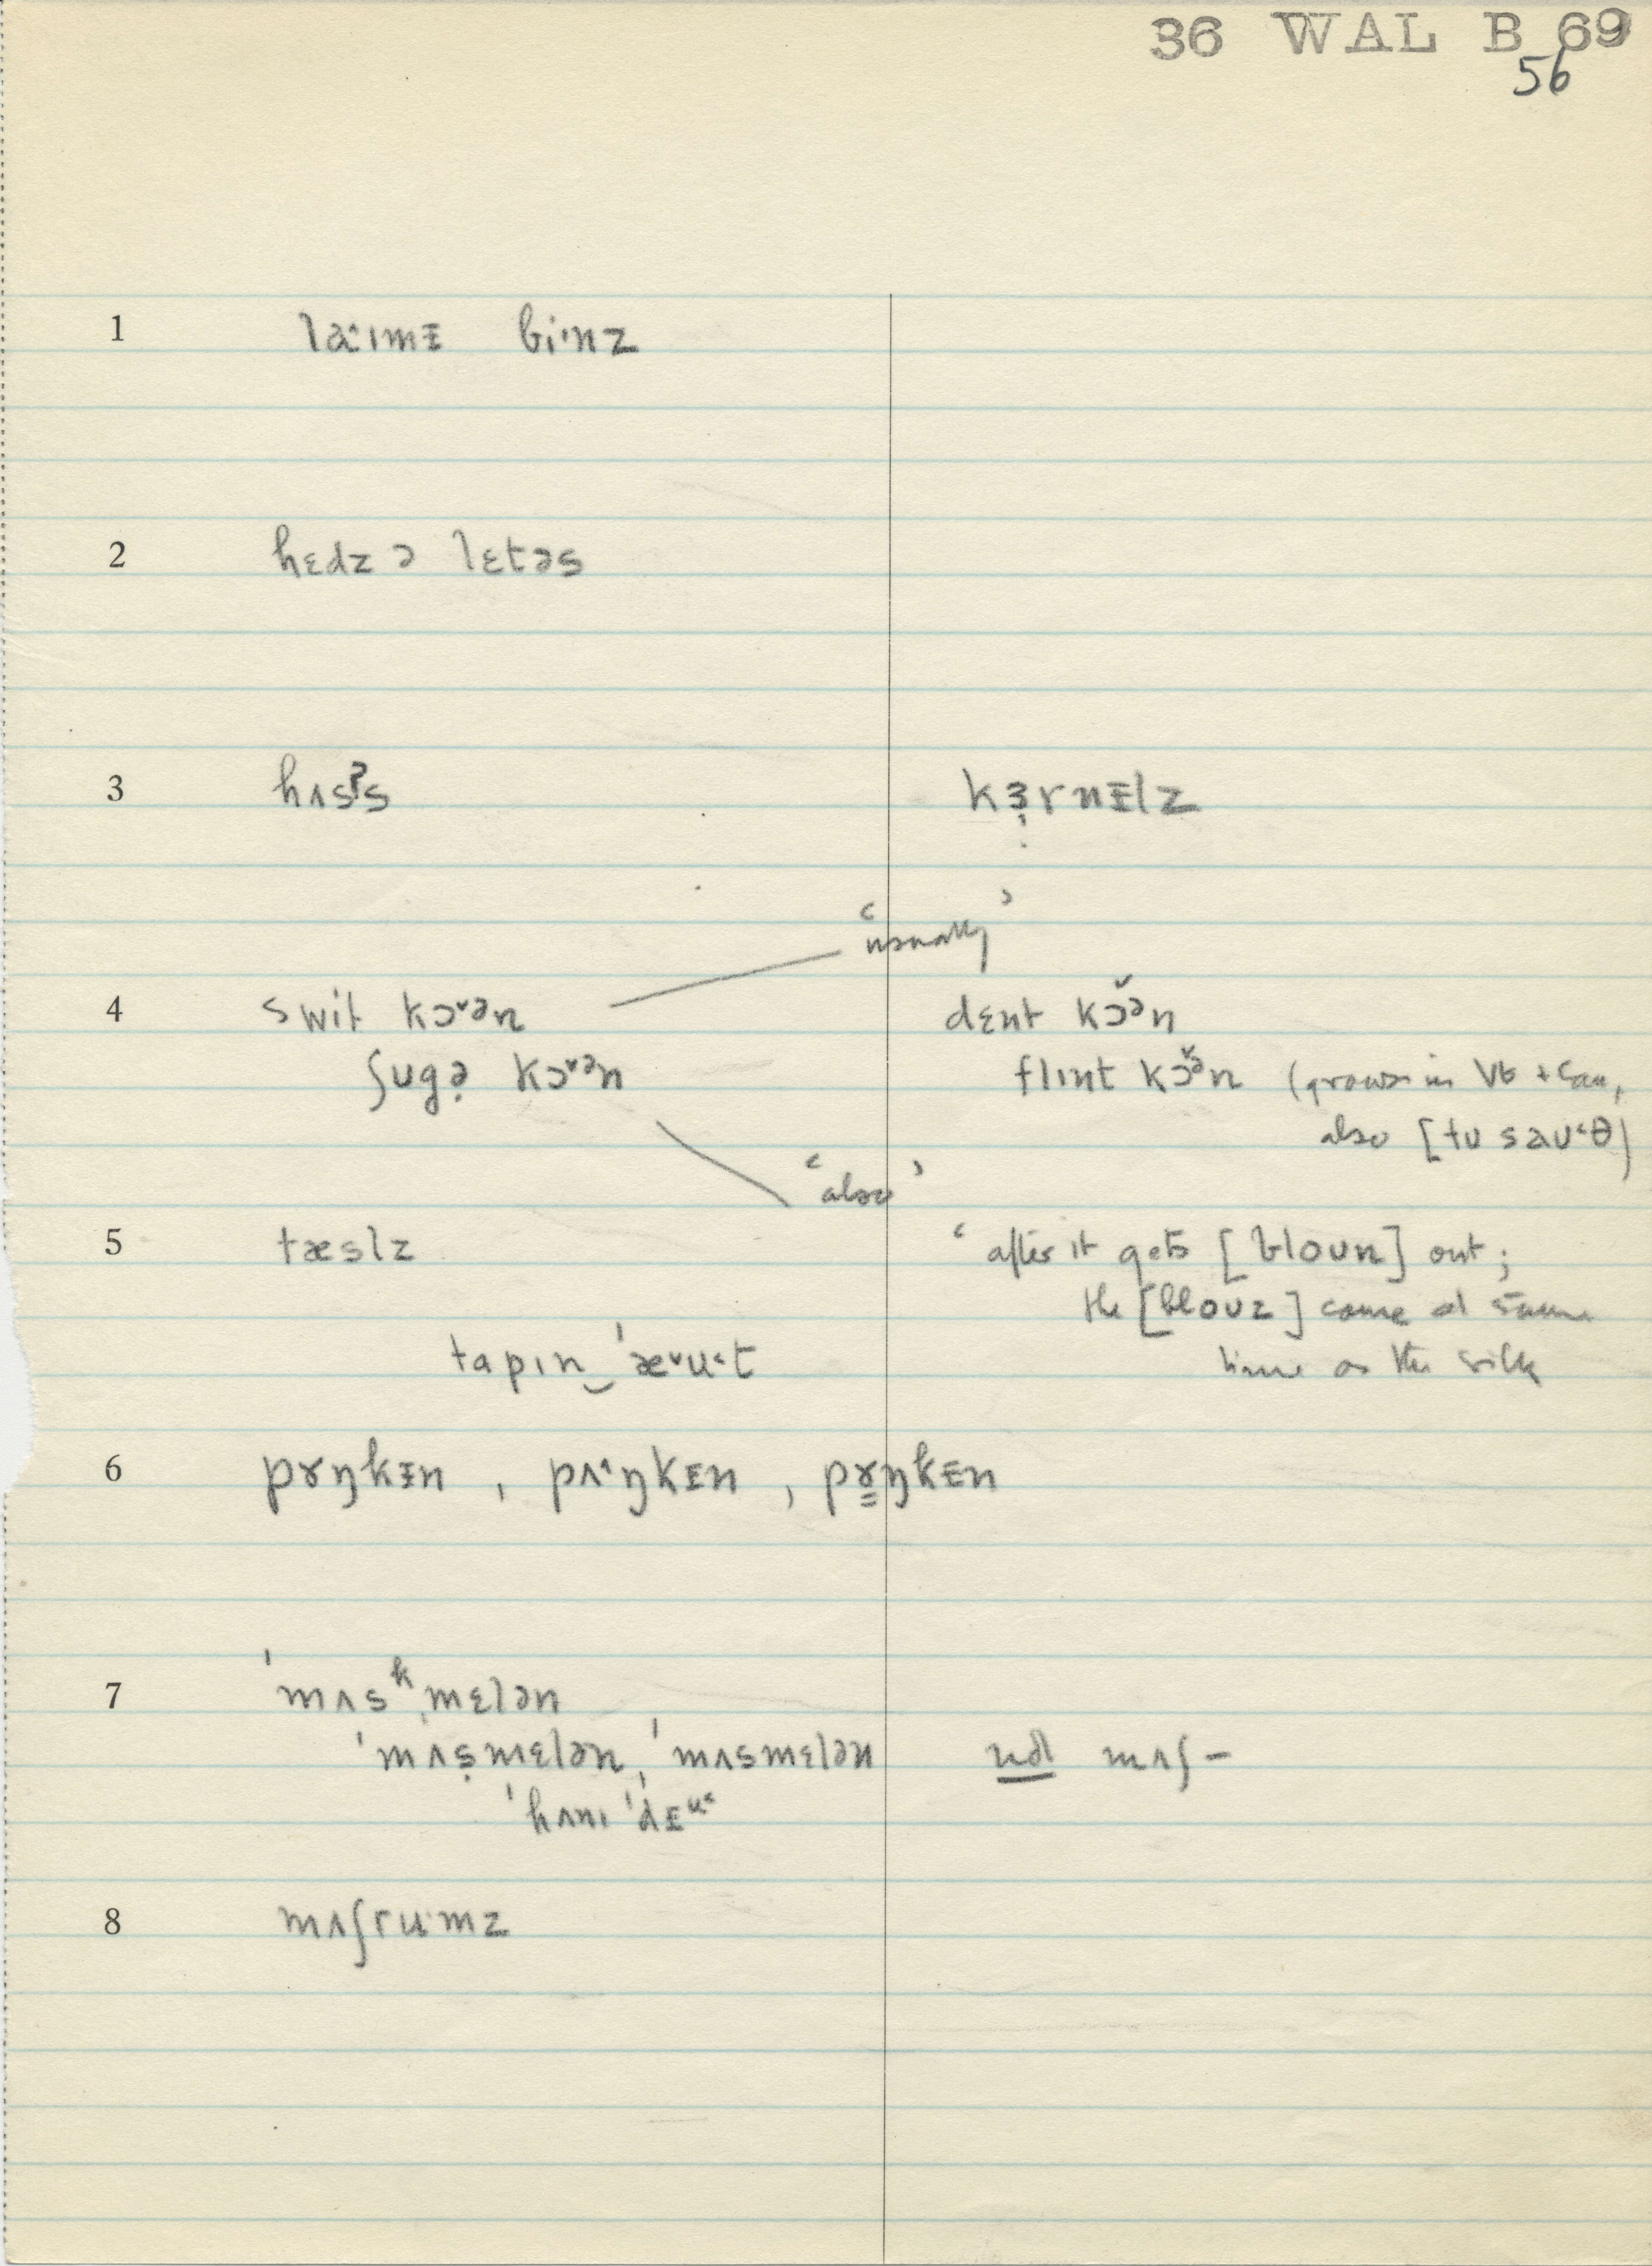 36 WAL B 69
56
1 laˑɪmᵻ biˑnz
2 hɛdz ə lɛtəs
3 hʌsˀs kɜ̣rnᵻlz
‘usually’
4 swit kɔ˅ən dɛnt kɔ̌ən
ʃugə̣ kɔ˅ən flɪnt kɔ̌ən (grows in Vt + Can,
also [tu sau˂θ]
‘also’
5 tæslz ‘after it gets [bloun] out;
the [blouz] come at same
tapɪn‿ˈæ˅u˂t time as the silk
6 pɤŋkᵻn , pʌ˄ŋkᵻn , pɤ̳ŋkᵻn
7 ˈmʌsᵏˌmɛlən
ˈmʌṣmɛlən, ˈmʌsmɛlən not mʌʃ–
ˈhʌnɪ ˈdᵻu˂
8 mʌʃruˑmz